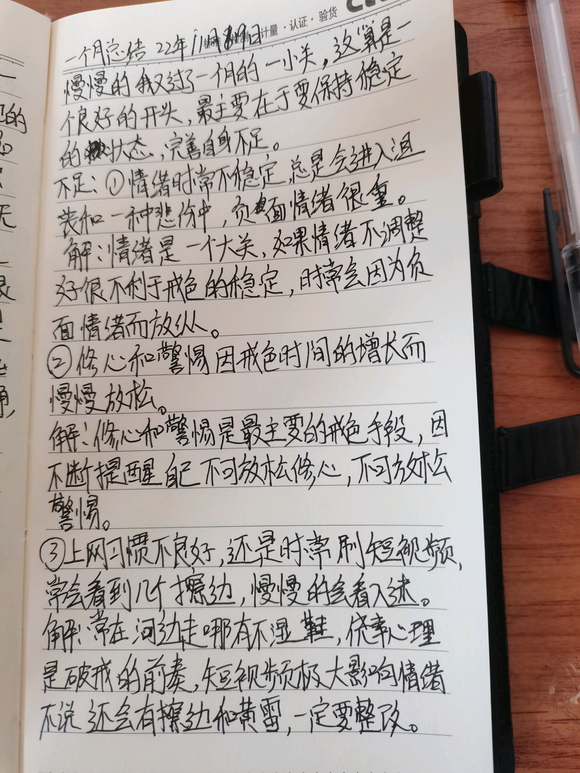 计量·认证·验货
一个月总结 22年11月19日
慢慢的我又过了一个月的一小关,这算是一
个良好的开头,最主要在于要保持稳定
的状态,完善自身不足。
不足:①情绪时常不稳定,总是会进入沮
丧和一种悲伤中,负面情绪很重。
解:情绪是一个大关,如果情绪不调整
好很不利于戒色的稳定,时常会因为负
面情绪而放纵。
②修心和警惕因戒色时间的增长而
慢慢放松。
解:修心和警惕是最主要的戒色手段,因
不断提醒自己不可放松修心,不可放松
警惕。
③上网习惯不良好,还是时常刷短视频,
常会看到几个擦边,慢慢的会看入迷。
解:常在河边走哪有不湿鞋,侥幸心理
是破戒的前奏,短视频极大影响情绪
不说还会有擦边和黄雷,一定要整改。